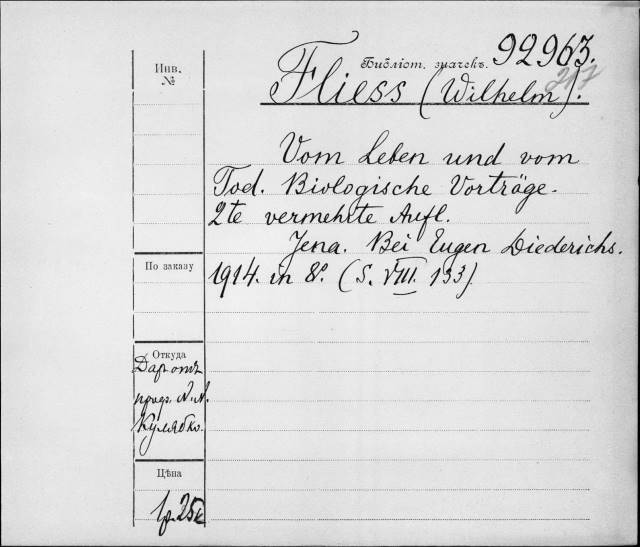 Библіот. значекъ. 92963.
Инв.
№
217
Fliess (Wilhelm).
Vom Leben und vom
Tod. Biologische Vorträge.
2te vermehrte Aufl.
Jena. Bei Eugen Diederichs.
По заказу
1914. in 8º. (S. VIII. 133).
Откуда
Даръ отъ
проф.
Кулябко.
Цѣна
1р.25к